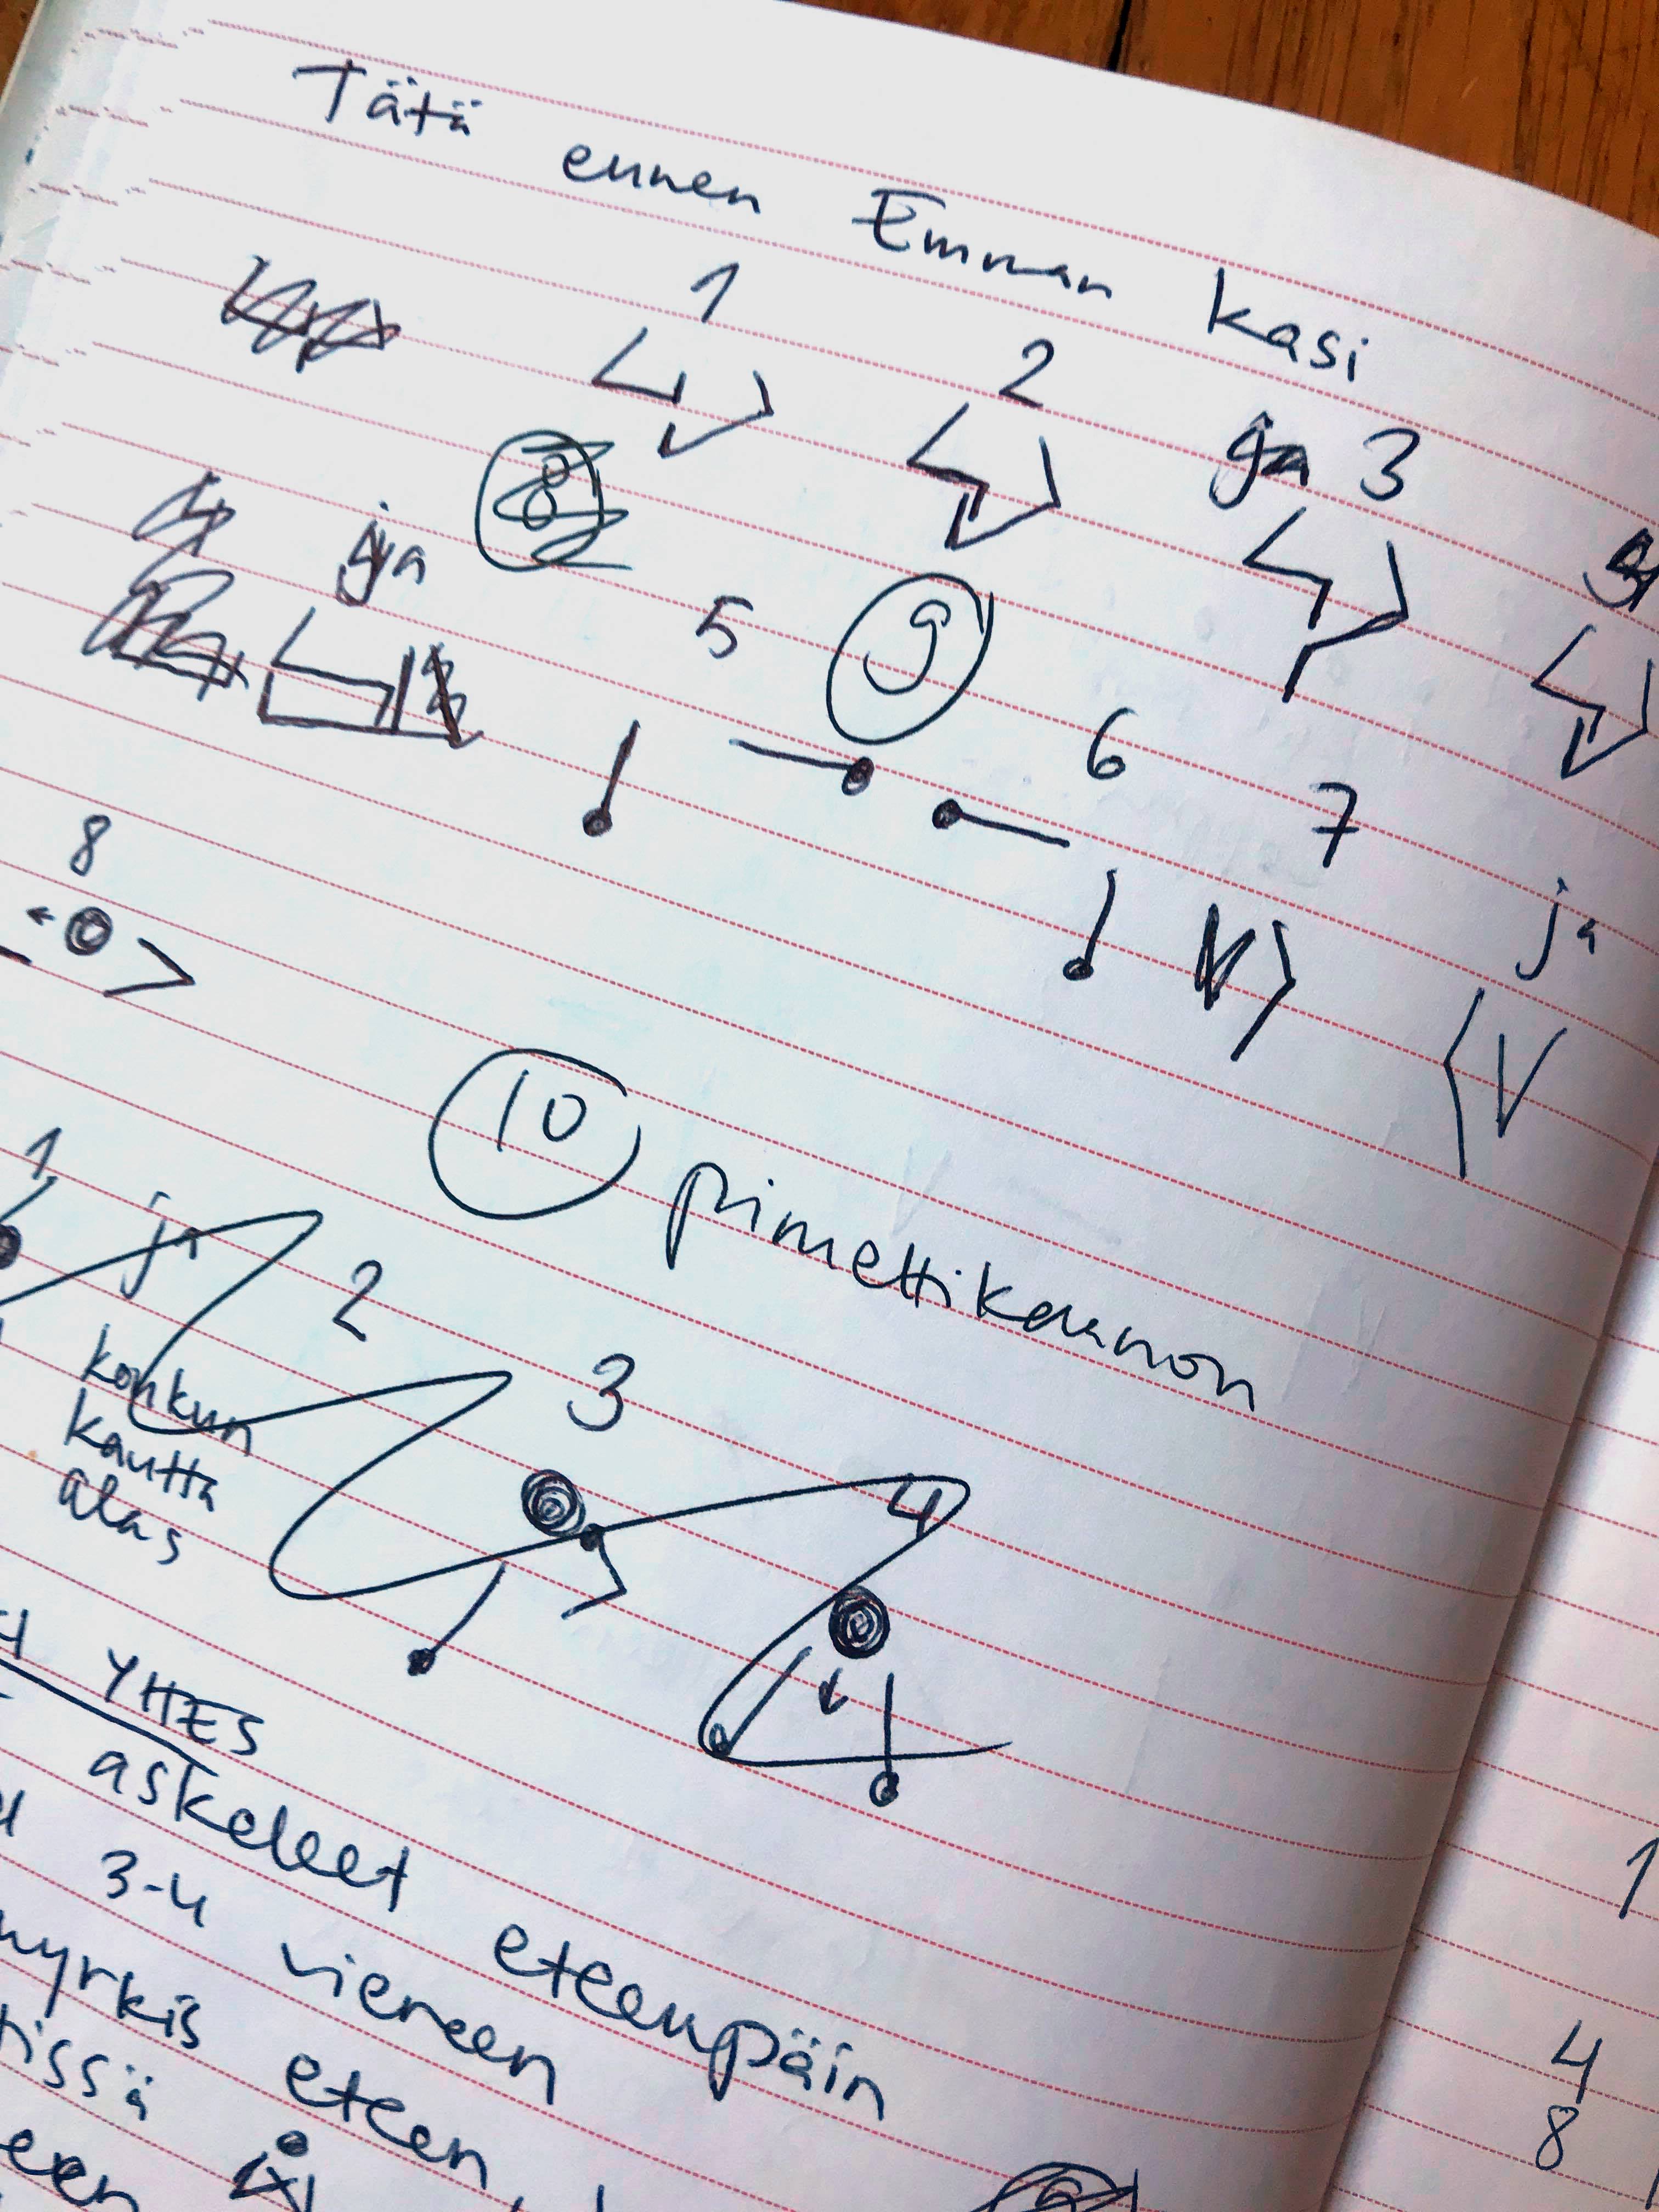 Tätä ennen Emman kasi
1 2 ja 3
ja 5 9 6 7 ja
8
10 pimettikaanon
1 ja 2 3 4
konkun
kautta
alas
YHES
askeleet eteenpäin
3-4 viereen
eteen
1
4
8